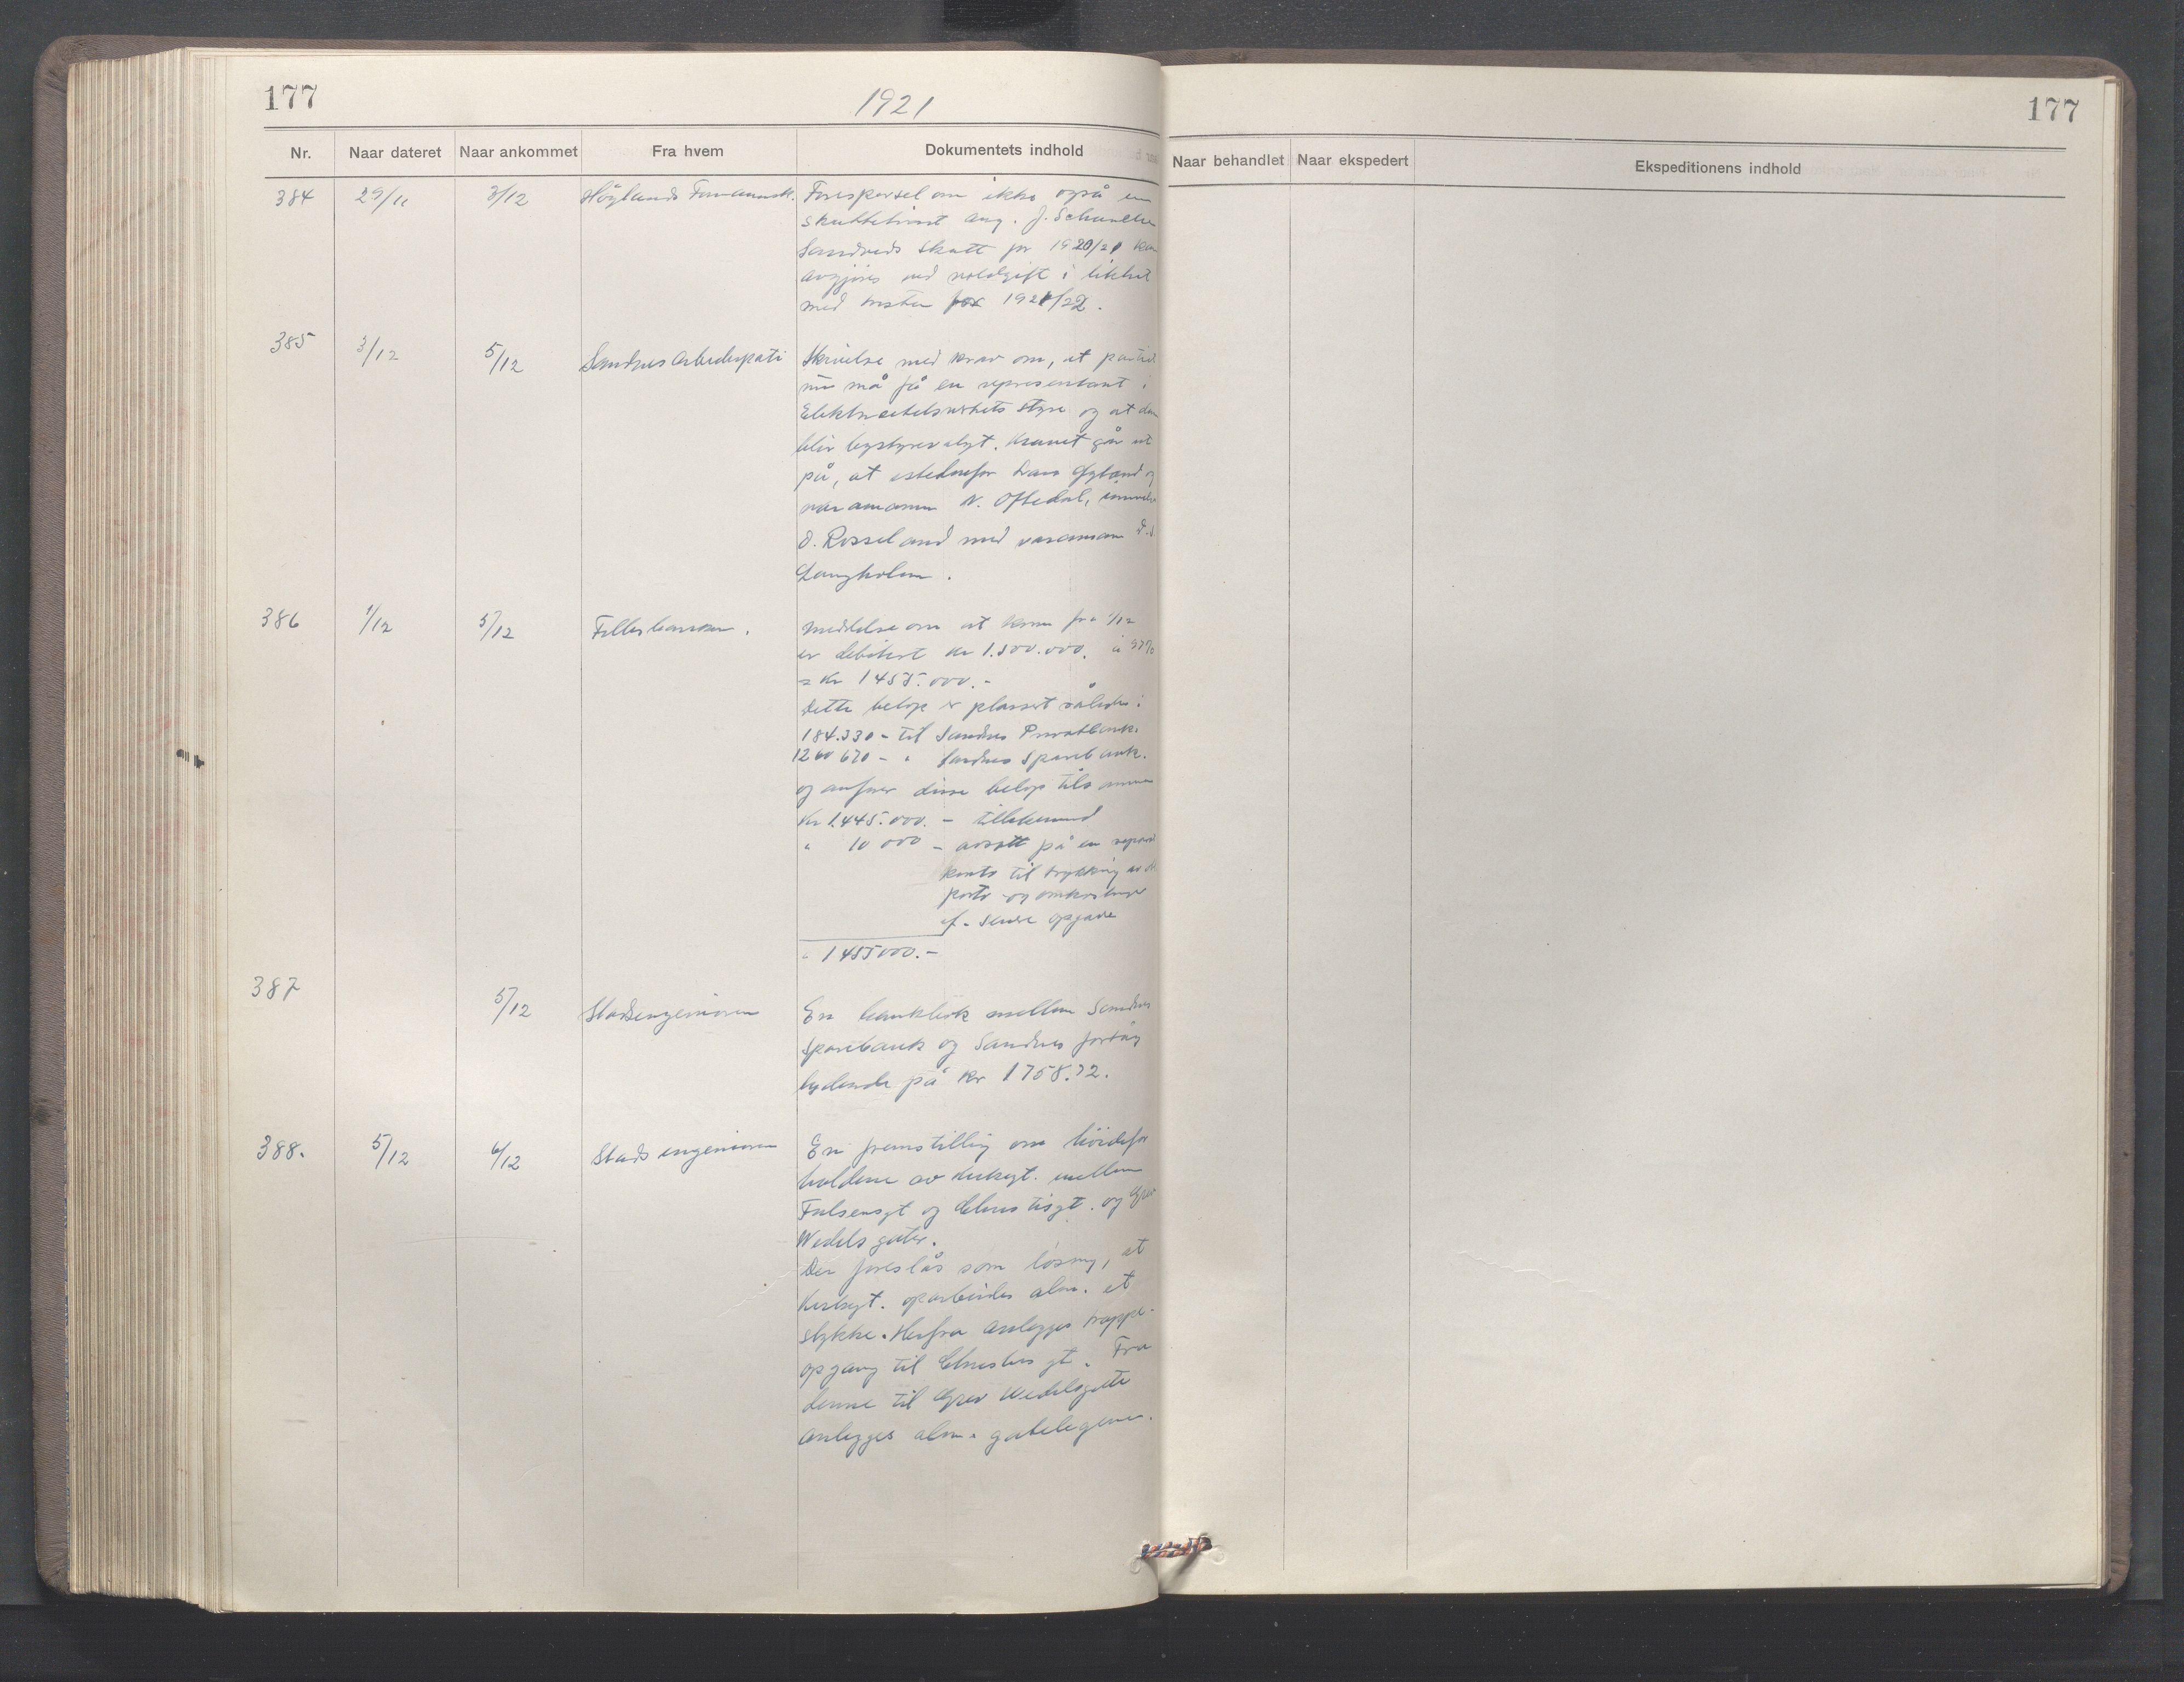 177
1921
Nr. Naar dateret Naar ankommet Fra hvem Dokumentets indhold
384 29/11 3/12 Höylands Formannsk. Forespørsel om ikke også en
skattetvist ang. J. Schancke
Sandveds Skatt pr 1920/21 kan
avgjøres ved voldgift i likhet
med tvisten for 1921/22.
385 3/12 5/12 Sandnes Arbeiderparti Skrivelse med krav om, at partiet
nu må få en representant i
Elektrisitetsverkets styre og at den
blir bystyrevalgt. Kravet går ut
på, at istedenfor Lars Øgland og
varamann N. Oftedal,
O. Rosseland med varamann
Langholm.
386 1/12 5/12 Fellesbanken. Meddelse om at kom fra 1/12
er debitert Kr 1.500.000. à 97%
= Kr 1455.000.-
Dette beløp er plassert således:
184.330 - til Sandnes Privatbank.
1260670 - " Sandnes Sparebank.
og anfører disse beløp tilsammen
Kr 1.445.000. - tillikemed
" 10 000 - avsatt på en separat
konto til trykking av
porto og omkostninger
cf. senere opgave
" 1455000.-
387 5/12 Stadsingeniøren En kontrakt mellem Sandnes
Sparebank og Sandnes
lydende på Kr 1758.72.
388. 5/12 6/12 Stadsingeniøren En fremstilling om höidefor
holdene av Kirkegt. mellem
Falsensgt og Christiesgt. og Grev
Wedels gater.
Der foreslås som løsning, at
Kirkegt. oparbeides alm. et
stykke. Herfra anlegges trappe-
opgang til Christies gt. Fra
denne til Grev Wedelsgate
anlegges alm.
177
Naar behandlet Naar ekspedert Ekspeditionens indhold